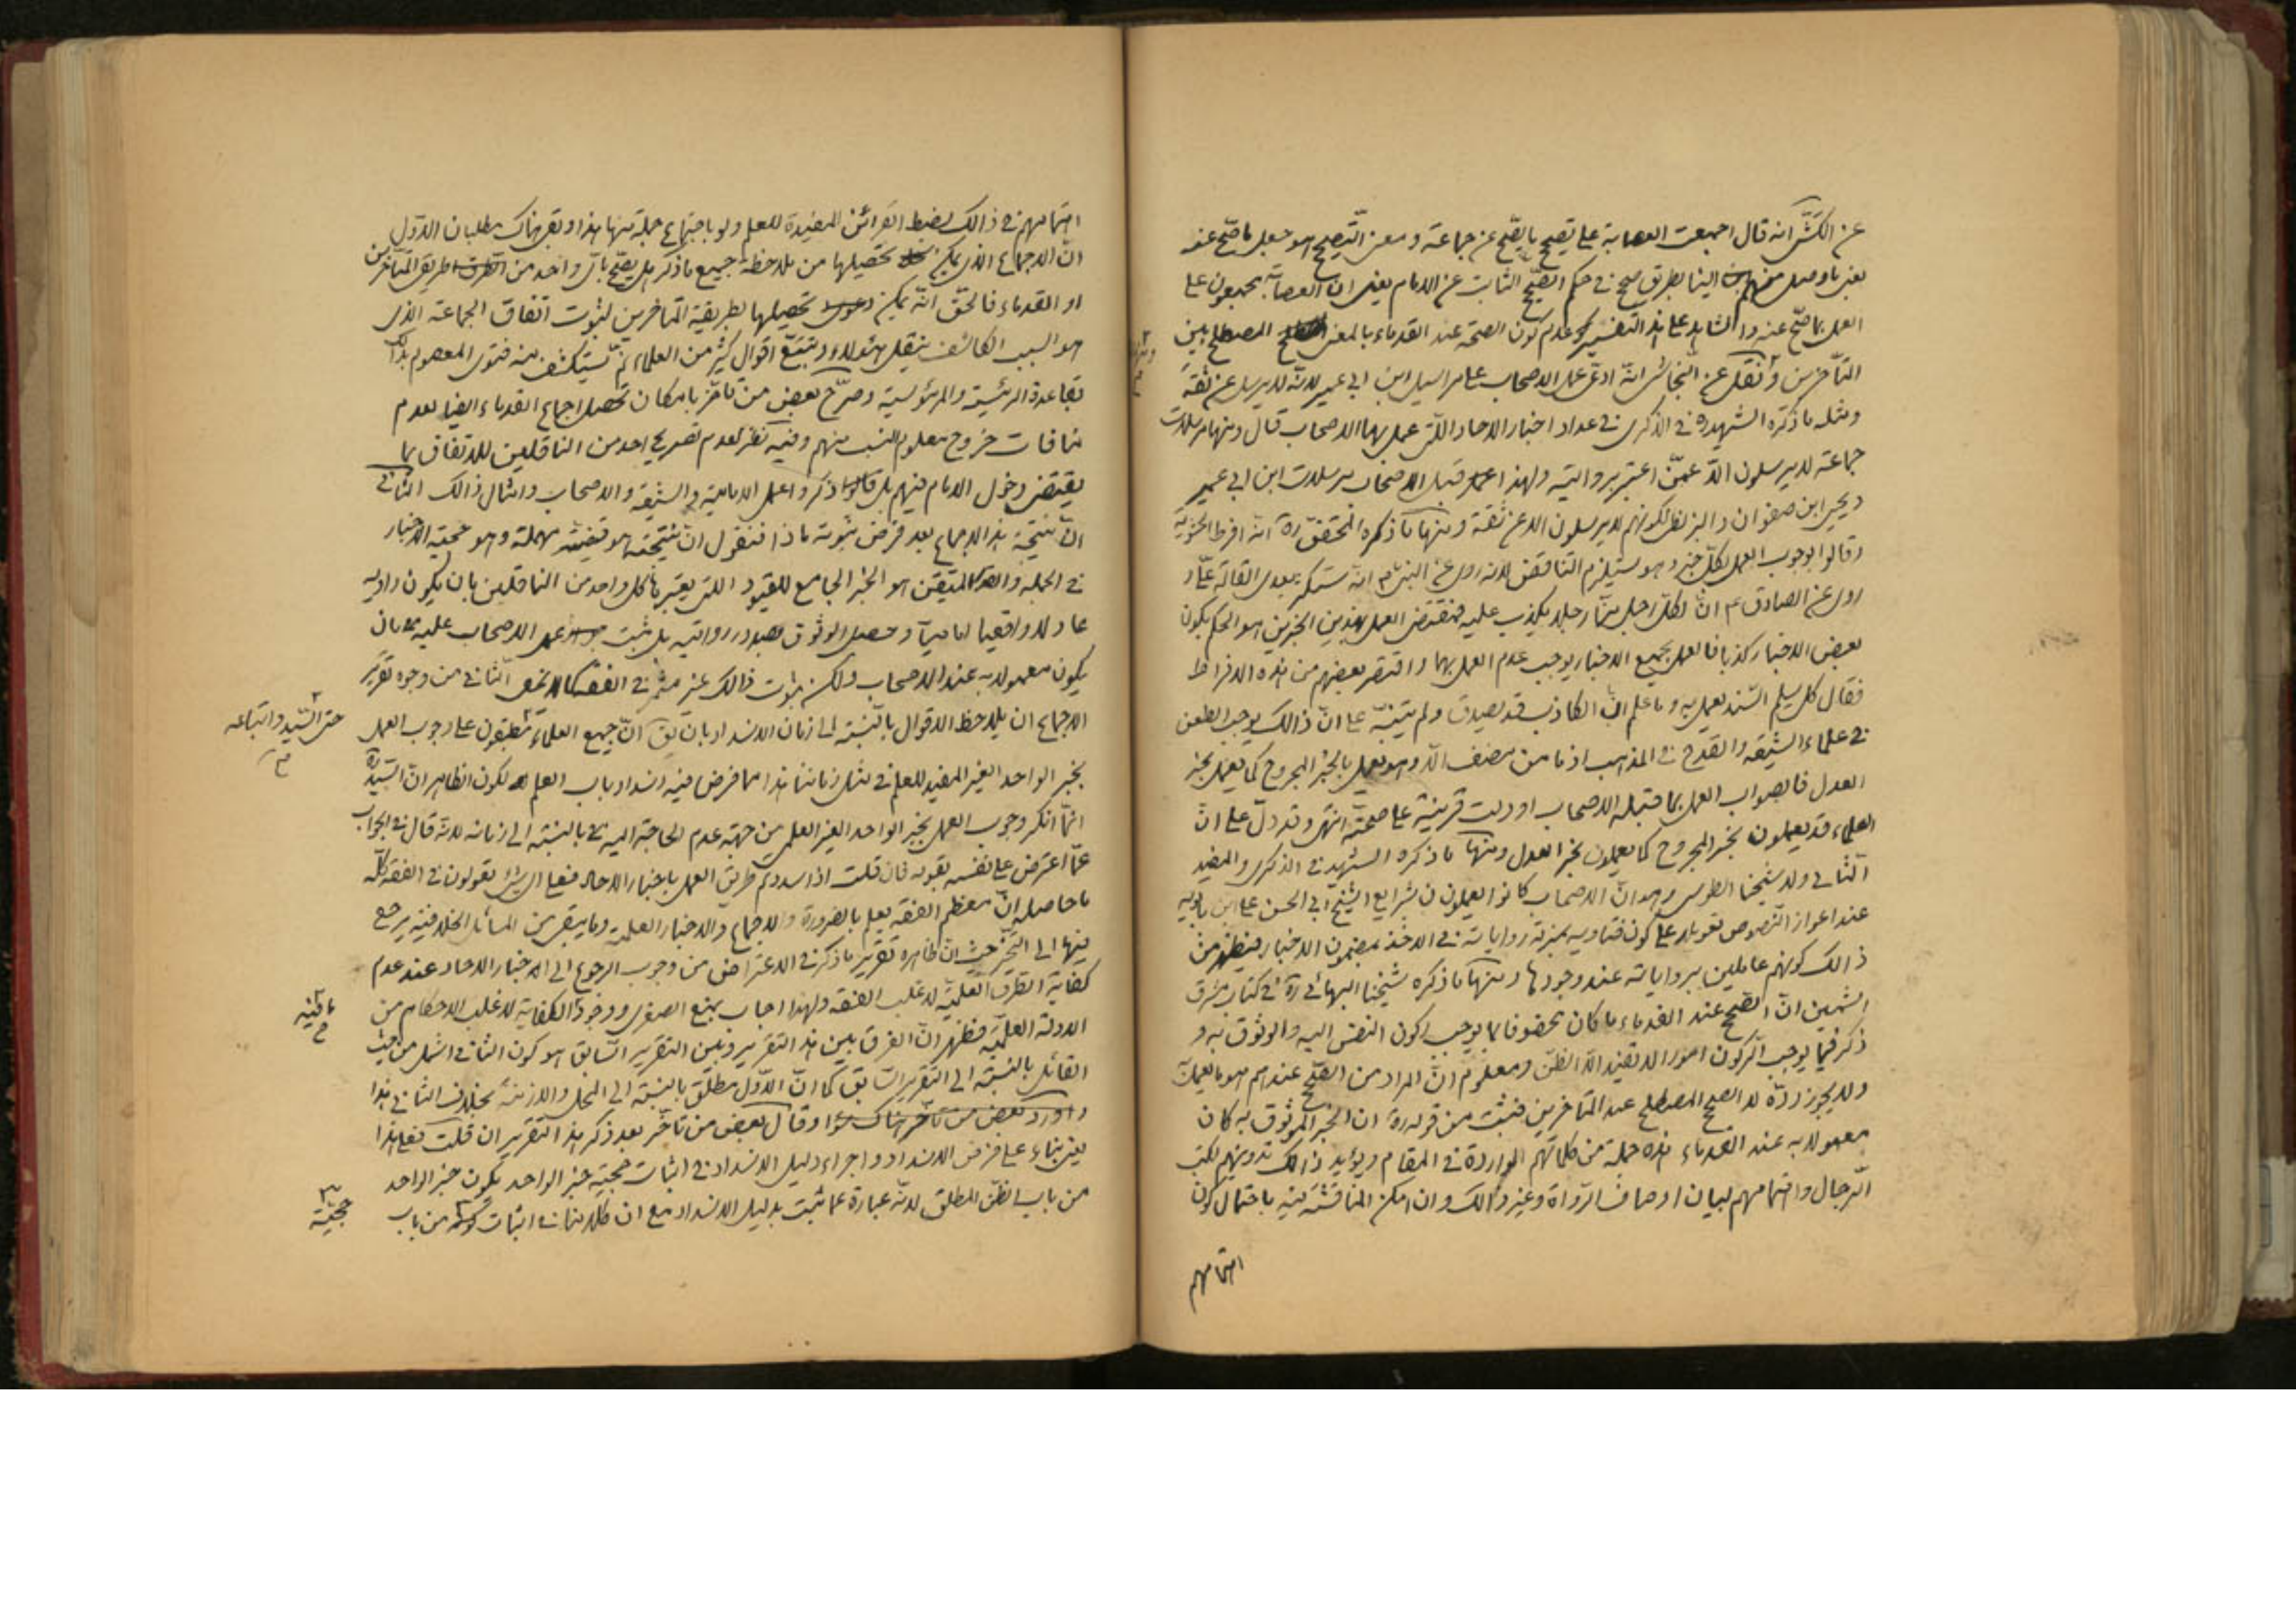 عن الكشّى انه قال اجمعت العصابة على تصحيح ما يصحّ عن جماعة و معنى التّصحيح هو جعل ما صحّ عنه
يعنى ما وصل منهم الينا بطريق صحيح فى حكم الصّحيح الثابت عن الامام يعنى ان العصابة مجمعون على
العمل بما صحّ عنه و الشاهد على هذا التفسير عدم كون الصحة عند القدماء بالمعنى المصطلح بين
المتأخرين و نقل عن النجاشى انّه ادعى عمل الاصحاب على مراسيل ابن ابى عمير لانّه لا يرسل عن ثقة
و مثله ما ذكره الشهيد ره فى الذكرى فى عداد اخبار الاحاد الّتى عمل بها الاصحاب قال و منها مرسلات
جماعة لا يرسلون الّا عمّن اعتبر بروايته و لهذا قبل الاصحاب مرسلات ابن ابى عمير
و يحيى ابن صفوان و البزنطى لكونهم لا يرسلون الا عن ثقة و منها ما ذكره المحقّق ره انه افرط الحشوية
و قالوا بوجوب العمل بكلّ خبر و هو يستلزم التناقض لانه روى عن النبى ص انه ستكثر بعدى القالة علىّ و
روى عن الصادق ع انّ لكلّ رجل منّا رجلا يكذب عليه فمقتضى العمل بهذين الخبرين هو الحكم بكون
بعض الاخبار كذبا فالعمل بجميع الاخبار يوجب عدم العمل بهما و اقتصر بعضهم من هذه الافراط
فقال كل سليم السّند يعمل به و ما علم انّ الكاذب قد يصدق و لم يتنبّه على انّ ذالك يوجب الطعن
فى علماء الشيعه و القدح فى المذهب اذ ما من مصنف الّا و هو يعمل بالخبر المجروح كما يعمل بخبر
العدل فالصواب العمل بما قبله الاصحاب او دلت قرينة على صحّته انتهى و قد دلّ على انّ
العلماء قد يعملون بخبر المجروح كما يعملون بخبر العدل و منها ما ذكره الشهيد فى الذكرى و المفيد
الثانى ولد شيخنا الطوسى و هو انّ الاصحاب كانوا يعملون بشرايع الشيخ ابى الحسن على ابن بابويه
عند اعواز النّصوص تعويلا على كون فتاويه بمنزلة رواياته فى الاخذ بمضمون الاخبار فيظهر من
ذالك كونهم عاملين برواياته عند وجودها و منها ما ذكره شيخنا البهائى ره فى كتاب مشرق
الشمسين انّ الصّحيح عند القدماء ما كان محفوفا بما يوجب ركون النفس اليه و الوثوق به و
ذكر فيما يوجب الركون امورا لا تفيد الّا الظنّ و معلوم انّ المراد من الصّحيح عندهم هو ما يعملون
و لا يجوز ردّه لا الصحيح المصطلح عند المتأخرين فثبت من قوله ره ان الخبر الموثوق به كان
معمولا به عند القدماء هذه جملة من كلماتهم الواردة فى المقام و يؤيد ذالك تدوينهم لكتب
الرّجال و اهتمامهم لبيان اوصاف الرّواة و غير ذالك و ان امكن المناقشة فيه باحتمال كون
اهتمامهم
اهتمامهم فى ذالك لضبط القرائن المفيدة للعلم و لو باجتماع جملة منها هذا و بقى هناك مطلبان الاوّل
انّ الاجماع الذى يمكن تحصيلها من ملاحظة جميع ما ذكر هل يصحّ بأىّ واحد من طريق المتأخرين
او القدماء فالحقّ انّه يمكن تحصيلها بطريقة المتأخرين لثبوت اتفاق الجماعة الذى
هو السبب الكاشف بنقل هؤلاء و تتبّع اقوال كثير من العلماء ثمّ يستكشف منه فتوى المعصوم بذالك
بقاعدة الرئيسية و المرئوسية و صرّح بعض من تأخّر بامكان تحصيل اجماع القدماء ايضا بعدم
منافات خروج معلوم النسب منهم و فيه نظر لعدم تصريح احد من الناقلين للاتفاق بما
يقتضى دخول الامام فيهم بل ذكروا عمل الامامية و الشيعة و الاصحاب و امثال ذالك الثانى
انّ نتيجة هذا الاجماع بعد فرض ثبوته ماذا فنقول انّ نتيجته هو قضيّته مهملة و هو حجّية الاخبار
فى الجملة و المتيقن هو الخبر الجامع للقيود الّتى يعتبرها كل واحد من الناقلين بان يكون راويه
عادلا واقعيا اماميّا و حصل الوثوق بصدور روايته بل ثبت عمل الاصحاب عليه بان
يكون معمولا به عند الاصحاب ولكن ثبوت ذالك غير مثمر فى الفقه الثانى من وجوه تقرير
الاجماع ان يلاحظ الاقوال بالنّسبة الى زمان الانسداد بان يق انّ جميع العلماء مطبقون على وجوب العمل
حتى السّيد و اتباعه
بخبر الواحد الغير المفيد للعلم فى مثل زماننا هذا مما فرض فيه انسداد باب العلم لكون الظاهر انّ السّيد ره
انّما انكر وجوب العمل بخبر الواحد الغير العلمى من جهة عدم الحاجة اليه بالنسبة الى زمانه لانّه قال فى الجواب
عمّا اعترض على نفسه بقوله فان قلت اذا سددتم طريق العمل باخبار الاحاد فعلى اىّ شئ تعولون فى الفقه كلّه
ما حاصله انّ معظم الفقه يعلم بالضرورة و الاجماع و الاخبار العلمية و ما يبقى من المسائل الخلافية يرجع
فيها الى التخيير حيث انّ ظاهره تقرير ما ذكر فى الاعتراض من وجوب الرجوع الى الاخبار الاحاد عند عدم
كفاية الطرق العلميّة لاغلب الفقه و لهذا اجاب بمنع الصغرى و وجود الكفاية لاغلب الاحكام من
الادلة العلميّة فظهر انّ الفرق بين هذا التقرير و بين التقرير السّابق هو كون الثانى اشمل من حيث
القائل بالنسبة الى التقرير السّابق كما انّ الاوّل مطلق بالنسبة الى المحل و الازمنة بخلاف الثانى هذا
و اورد بعض من تأخّر هناك و قال بعض من تأخّر بعد ذكر هذا التقرير ان قلت فعلى هذا
يعنى بناء على فرض الانسداد و اجراء دليل الانسداد فى اثبات حجّية خبر الواحد يكون خبر الواحد
من باب الظنّ المطلق لانّه عبارة عما ثبت بدليل الانسداد مع ان كلامنا فى اثبات من باب
حجيّته